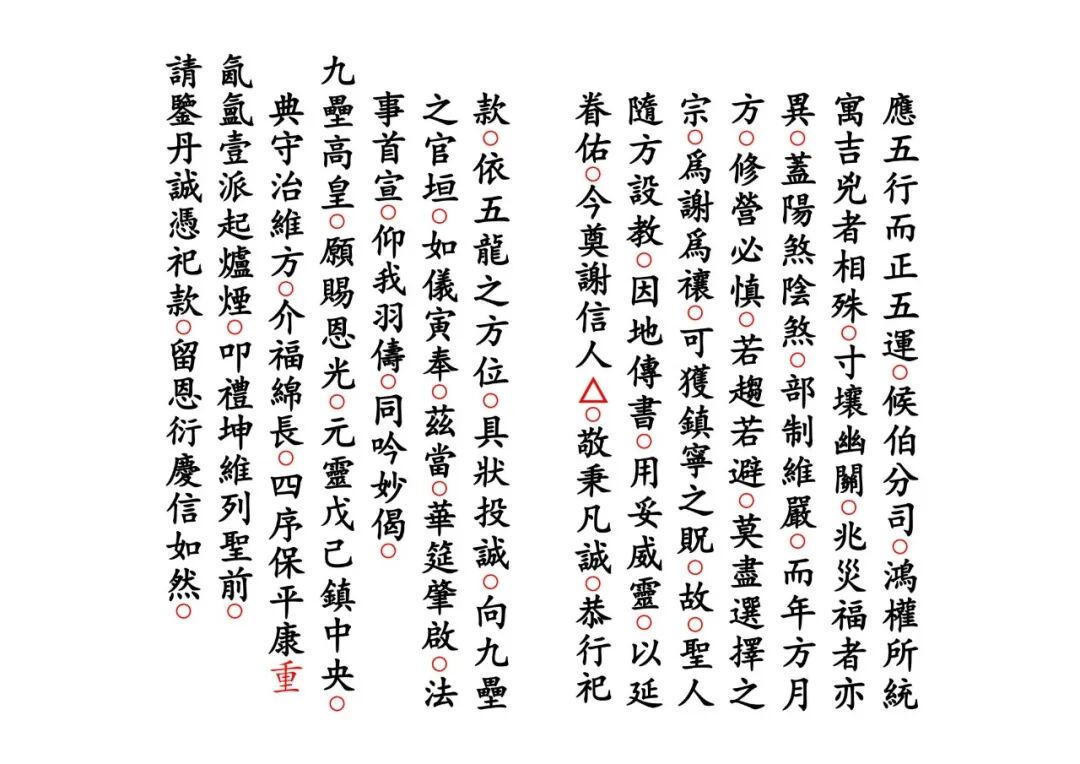 應五行而正五運○候伯分司○鴻權所統
寓吉兇者相殊○寸壤幽關○兆災福者亦
異○蓋陽煞陰煞○部制維嚴○而年方月
方○修營必慎○若趨若避○莫盡選擇之
宗○爲謝爲禳○可獲鎮寧之貺○故○聖人
隨方設教○因地傳書○用妥威靈○以延
眷佑○今奠謝信人△○敬秉凡誠○恭行祀
款○依五龍之方位○具狀投誠○向九壘
之官垣○如儀寅奉○茲當○華筵肇啟○法
事首宣○仰我羽儔○同吟妙偈○
九壘高皇○願賜恩光○元靈戊己鎮中央○
典守治維方○介福綿長○四序保平康重
氤氳壹派起爐煙○叩禮坤維列聖前○
請鑒丹誠憑祀款○留恩衍慶信如然○